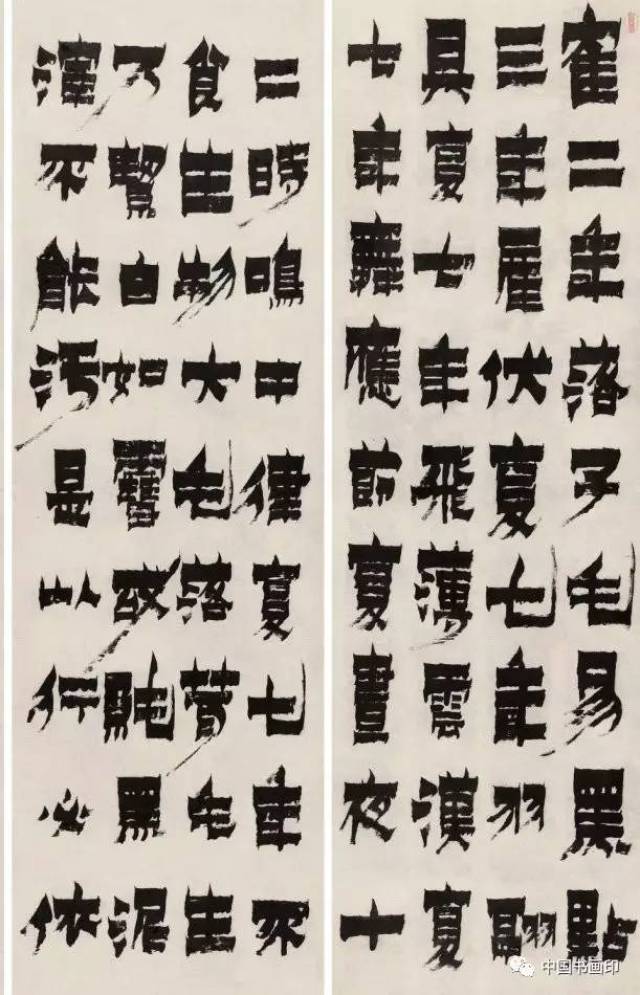 隺二年落子毛易黑點
三年伏夏七年羽翮
具夏七年飛薄雲漢夏
七年舞應節夏晝夜十
二時鳴中律夏七年不
食生物大毛落茸毛生
乃白如故黑泥
不能污是以行必依
中国书画印